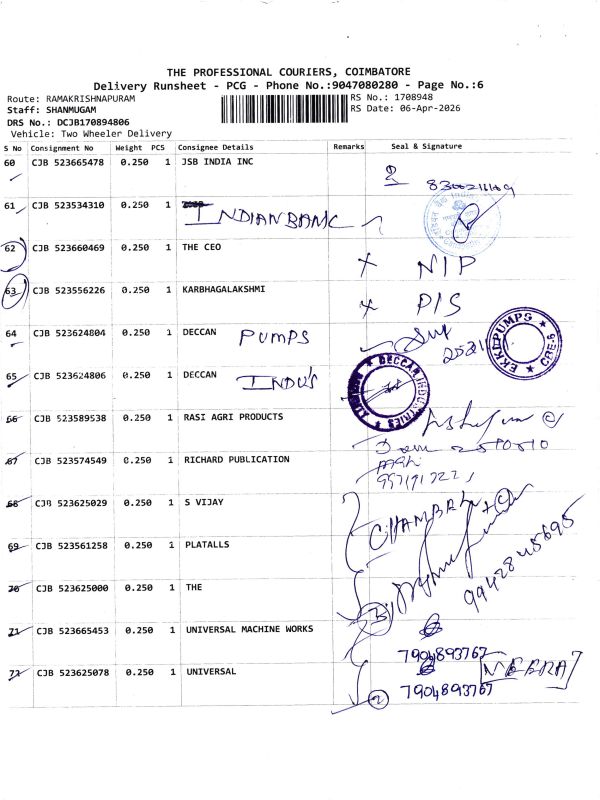 THE PROFESSIONAL COURIERS, COIMBATORE
Delivery Runsheet - PCG - Phone No.:9047080280 - Page No.:6
Route: RAMAKRISHNAPURAM
RS No.: 1708948
Staff: SHANMUGAM
RS Date: 06-Apr-2026
DRS No.: DCJB170894806
Vehicle: Two Wheeler Delivery
S No Consignment No Weight PCS Consignee Details Remarks Seal & Signature
60 CJB 523665478 0.250 1 JSB INDIA INC
61 CJB 523534310 0.250 1 INDIAN BANK
62 CJB 523660469 0.250 1 THE CEO X NIP
63 CJB 523556226 0.250 1 KARBHAGALAKSHMI X PIS
64 CJB 523624804 0.250 1 DECCAN PUMPS
EKKI PUMPS CBE-6
65 CJB 523624806 0.250 1 DECCAN INDU'S
DECCAN INDUSTRIES
66 CJB 523589538 0.250 1 RASI AGRI PRODUCTS
67 CJB 523574549 0.250 1 RICHARD PUBLICATION
68 CJB 523625029 0.250 1 S VIJAY
69 CJB 523561258 0.250 1 PLATALLS
9942845695
70 CJB 523625000 0.250 1 THE
71 CJB 523665453 0.250 1 UNIVERSAL MACHINE WORKS
7904893767
72 CJB 523625078 0.250 1 UNIVERSAL
NEERAJ
7904893767
2